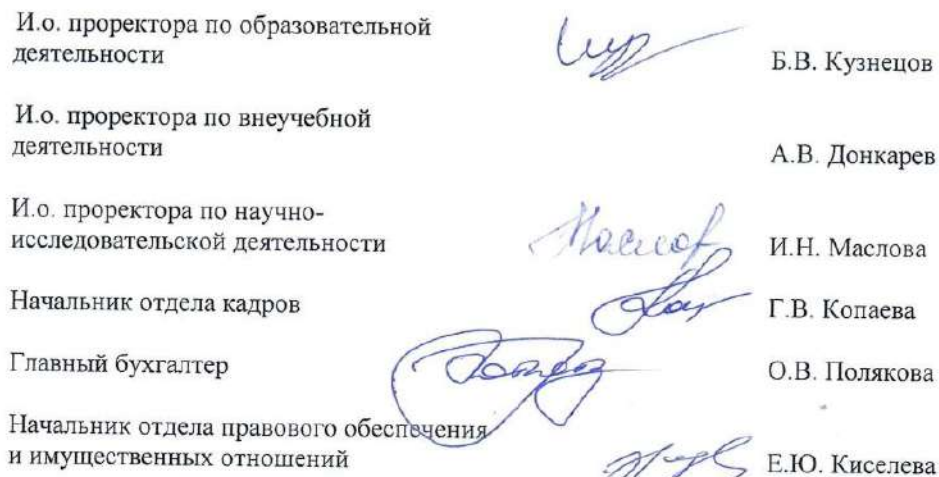 И.о. проректора по образовательной
деятельности
Б.В. Кузнецов
И.о. проректора по внеучебной
деятельности
А.В. Донкарев
И.о. проректора по научно-
исследовательской деятельности
И.Н. Маслова
Начальник отдела кадров
Г.В. Копаева
Главный бухгалтер
О.В. Полякова
Начальник отдела правового обеспечения
и имущественных отношений
Е.Ю. Киселева